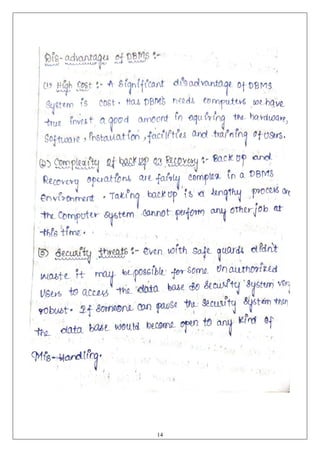 Dis-advantages of DBMS :-
(1) High Cost :- A Significant disadvantage of DBMS
System is cost. Has DBMS needs computers we have
true invest a good amount in aquiring the hardware,
Software, installation, facilities and training of users.
(2) Complexity of back up or Recovery :- Back up and
Recovery operations are fairly complex in a DBMS
Environment. Taking backup is a lengthy process or
the Computer System cannot perform any other job at
this time.
(3) Security threats :- Even with safe guards didn't
waste it may be possible for some unauthorized
Users to access the data base so Security System
robust. If Someone can pause the Security System then
the data base would become open to any kind of
Mis-Handling.
14